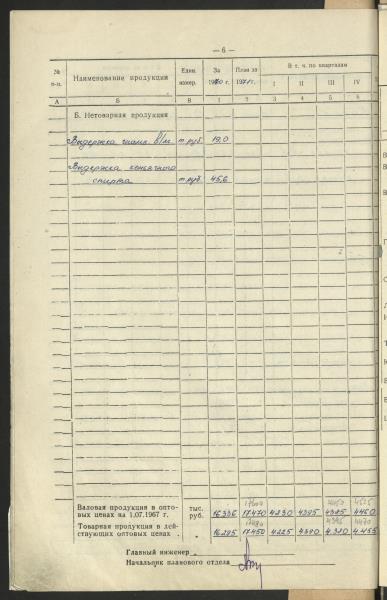 — 6 —
№ п-п. Наименование продукции Един. измер. За 1970 г. План за 1971 г. В т. ч. по кварталам
I II III IV
А Б В 1 2 3 4 5 6
Б. Нетоварная продукция
Выдержка в/м. т.руб. 19,0
Выдержка коньячного
спирта т.руб. 45,6
4525
Валовая продукция в опто-
вых ценах на 1.07.1967 г. тыс. руб. 16336 17470 4230 4395 4385 4460
4395 4470
Товарная продукция в дей-
ствующих оптовых ценах . 16295 17450 4225 4390 4380 4455
Главный инженер
Начальник планового отдела